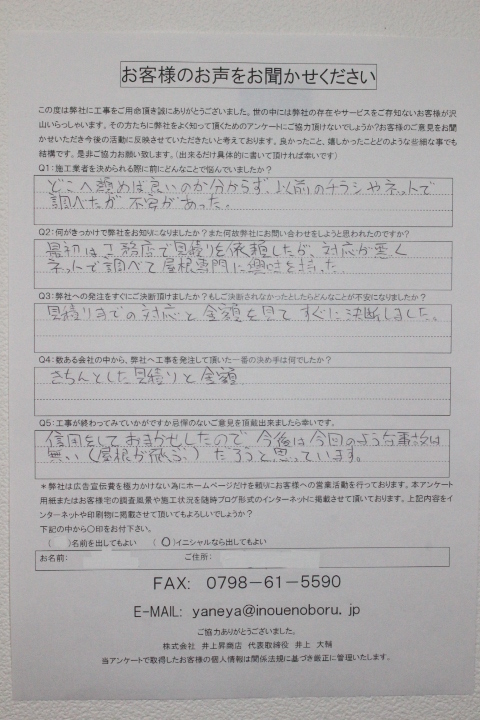 お客様のお声をお聞かせください
この度は弊社に工事をご用命頂き誠にありがとうございました。世の中には弊社の存在やサービスをご存知ないお客様が沢
山いらっしゃいます。その方たちに弊社をよく知って頂くためのアンケートにご協力頂けないでしょうか?お客様のご意見をお聞
かせいただき今後の活動に反映させていただきたいと考えております。良かったこと、嬉しかったことどのような些細な事でも
結構です。是非ご協力お願い致します。(出来るだけ具体的に書いて頂ければ幸いです)
Q1:施工業者を決められる際に前にどんなことで悩んでいましたか?
どこへ頼めば良いのか分からず、以前のチラシやネットで
調べたが不安があった。
Q2:何がきっかけで弊社をお知りになりましたか?また何故弊社にお問い合わせをしようと思われたのですか?
最初は工務店で見積りを依頼したが、対応が悪く
ネットで調べて屋根専門に興味を持った
Q3:弊社への発注をすぐにご決断頂けましたか?もしご決断されなかったとしたらどんなことが不安になりましたか?
見積りまでの対応と金額を見てすぐに決断しました。
Q4:数ある会社の中から、弊社へ工事を発注して頂いた一番の決め手は何でしたか?
きちんとした見積りと金額
Q5:工事が終わってみていかがですか忌憚のないご意見を頂戴出来ましたら幸いです。
信用をしておまかせしたので、今後は今回のような事故は
無い(屋根が飛ぶ)だろうと思っています。
*弊社は広告宣伝費を極力かけない為にホームページだけを頼りにお客様への営業活動を行っております。本アンケート
用紙またはお客様宅の調査風景や施工状況を随時ブログ形式のインターネットに掲載させて頂いております。上記内容をイ
ンターネットや印刷物に掲載させて頂いてもよろしいでしょうか?
下記の中から○印をお付下さい。
( )名前を出してもよい (○)イニシャルなら出してもよい
お名前: ご住所:
FAX: 0798-61-5590
E-MAIL: yaneya@inouenoboru.jp
ご協力ありがとうございました。
株式会社 井上昇商店 代表取締役 井上 大輔
当アンケートで取得したお客様の個人情報は関係法規に基づき厳正に管理いたします。